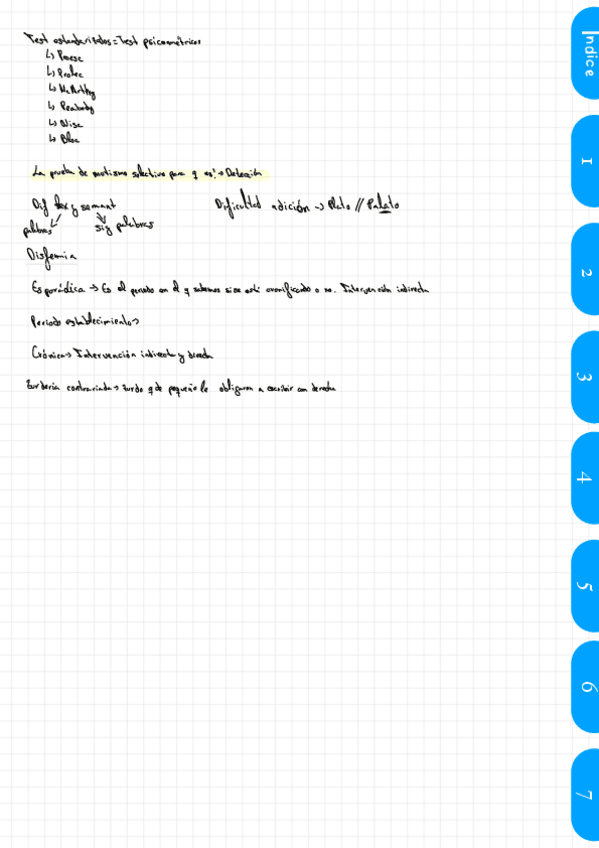 Test estandarizados = Test psicométricos
↳ Proesc
↳ Prolec
↳ McArthy
↳ Peabody
↳ Wisc
↳ Bloc
La prueba de mutismo selectivo para q es? → Detección
Dif lex y semant
palabras sig palabras
Dificultad adición → Plato // Palato
Disfemia
Esporádica → Es el periodo en el q sabemos si se está cronificando o no. Intervención indirecta
Periodo establecimiento →
Crónica → Intervención indirecta y directa
Zurdería contrariada → zurdo q de pequeño le obligaron a escribir con derecha
Índice
1
2
3
4
5
6
7